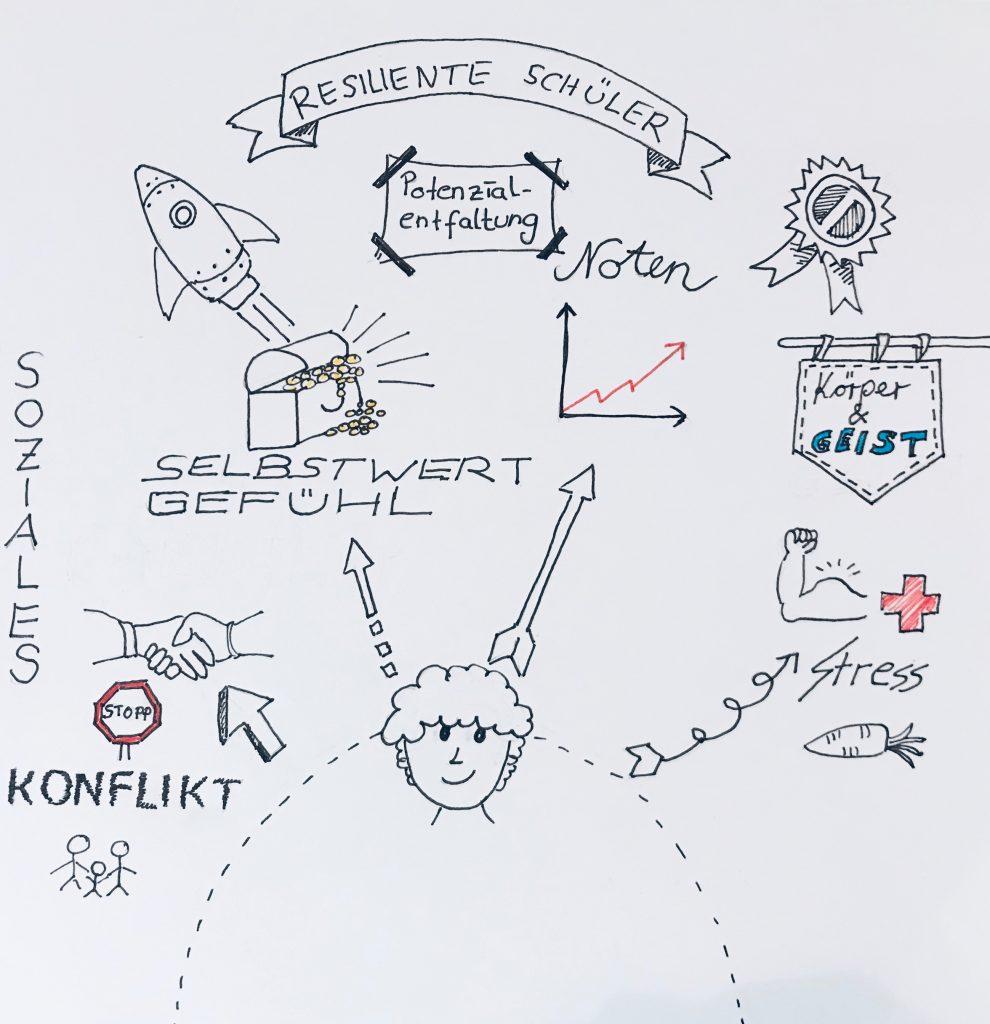 RESILIENTE SCHÜLER
Potenzial-
entfaltung
Noten
Körper
&
GEIST
SELBSTWERT
GEFÜHL
SOZIALES
Stress
STOPP
KONFLIKT